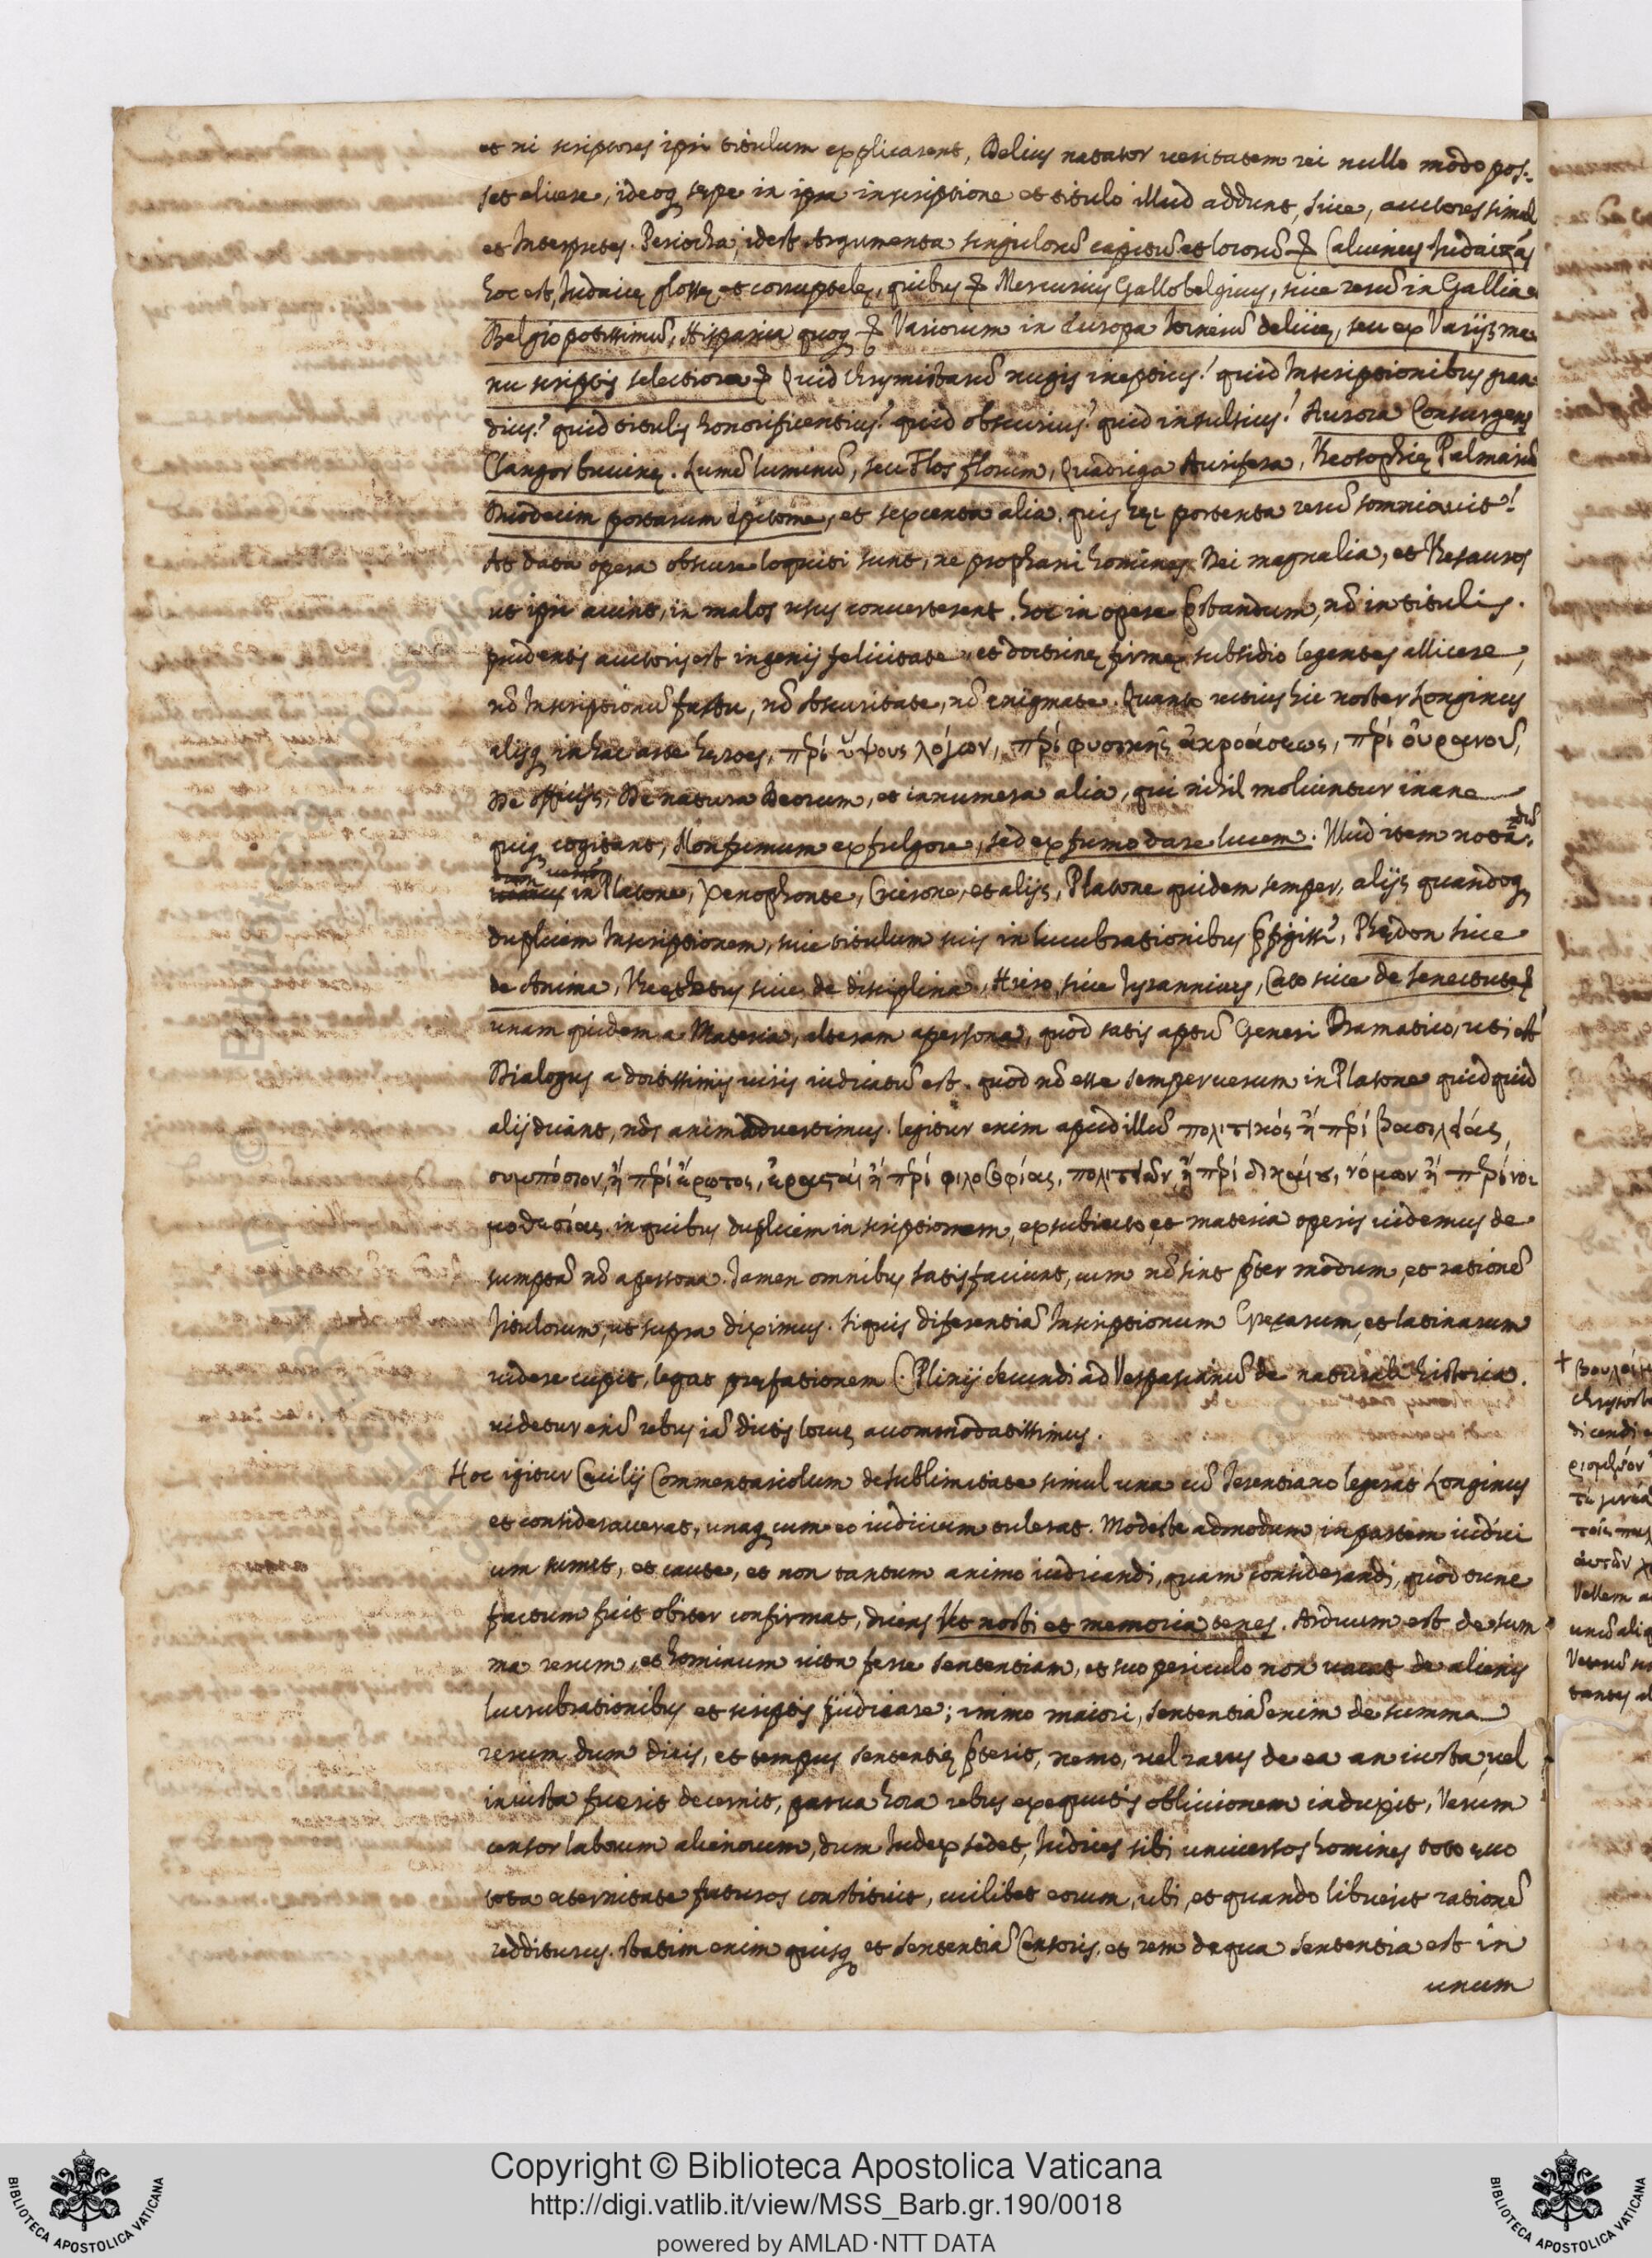 et ni scriptores ipsi titulum explicarent, Delius natator veritatem rei nullo modo pos-
set elicere, ideoq; sępe in ipsa inscriptione et titulo illud addunt, sive, auctores simul
et Interpretes. Periocha, idest Argumenta singulorū capitū et locorū & Calvinus Iudaizās
hoc est, Iudaicę glossę, et corruptelę, quibus & Mercurius Gallobelgicus, sive rerū in Gallia et
Belgio potissimū, Hispania quoq; & Variorum in Europa Itinerū delicię, seu ex Varijs ma-
nu scriptis selectiora & Quid chrymistarū nugis ineptius? quid Inscriptionibus gran-
dius? quid titulis honorificentius? quid obscurius? quid insulsius? Aurora Consurgens
Clangor buccinę. Lumē luminū, seu Flos florum, Quadriga Aurifera, Theosophię Palmariū
Duodecim portarum epitome, et sexcenta alia. quis hęc portenta rerū somniavit?
At data opera obscure loquuti sunt, ne prophani homines Dei magnalia, et Thesauros
ut ipsi aiunt, in malos usus converterent. hoc in opere p̄standum, nō in titulis.
prudentis auctoris est ingenij felicitate, et doctrinę firmę subsidio legentes allicere,
nō Inscriptionū fastu, nō obscuritate, nō enigmate. Quanto rectius hic noster Longinus
alijq; in hac arte heroes, περὶ ὕψους λόγων, περὶ φυσικῆς ἀκροάσεως, περὶ οὐρανοῦ,
De officijs, De natura Deorum, et innumera alia, qui nihil moliuntur inane
quiq; cogitant, Non fumum ex fulgore, sed ex fumo dare lucem. Illud item notā-
dū
in Platone, Xenophonte, Cicerone, et alijs, Platone quidem semper, alijs quandoq;
duplicem Inscriptionem, sive titulum suis in lucubrationibus , Phędon sive
de Anima, Theętetus sive de disciplina, Hiero, sive Tyrannicus, Cato sive de senectute &
unam quidem a Materia, alteram a persona, quod satis aptū Generi Dramatico, uti est
Dialogus a doctissimis viris iudicatū est. quod nō esse semper verum in Platone quidquid
alij dicant, nos animadvertimus. legitur enim apud illū πολιτικός ἢ περὶ βασιλείας,
συμπόσιον, ἢ περὶ ἔρωτος, ἐρασταί ἢ περὶ φιλοσοφίας, πολιτειῶν, ἢ περὶ δικαίου, νόμων ἢ περὶ νο-
μοθεσίας. in quibus duplicem inscriptionem, ex subiecto, et materia operis videmus de
sumptā nō a persona. Tamen omnibus satisfaciunt, cum nō sint p̄ter modum, et rationē
Titulorum, ut supra diximus. siquis diferentiā Inscriptionum Gręcarum, et latinarum
videre cupit, legat pręfationem C. Plinij Secundi ad Vespasianū de naturali historia.
videtur enī rebus iā dictis locus accommodatissimus.
Hoc igitur Cęcilij Commentariolum de sublimitate simul una cū Terentiano legerat Longinus
et consideraverat, unaq; cum eo iudicium tulerat. Modeste admodum in partem iudici
um sumit, et caute, et non tantum animo iudicandi, quam considerandi, quod tunc
factum fuit obiter confirmat, dicens Ut nosti et memoria tenes. Arduum est de sum
ma rerum, et hominum vita ferre sententiam, et suo periculo non vacat de alienis
lucubrationibus et scriptis iudicare; immo maiori, sententiā enim de summa
rerum dum dicis, et tempus sententię p̄terit, nemo, vel rarus de ea an iusta, vel
iniusta fuerit decernit, parva hora rebus exequutis oblivionem induxit, Verum
censor laborum alienorum, dum Iudex sedet, Iudices sibi universos homines toto ęvo
tota aternitate futuros constituit, cuilibet eorum, ubi, et quando libuerit rationē
redditurus. statim enim quisq; et sententiā Censoris, et rem de qua sententia est in
unum
Copyright © Biblioteca Apostolica Vaticana
http://digi.vatlib.it/view/MSS_Barb.gr.190/0018
powered by AMLAD·NTT DATA
BIBLIOTECA APOSTOLICA VATICANA
BIBLIOTECA APOSTOLICA VATICANA